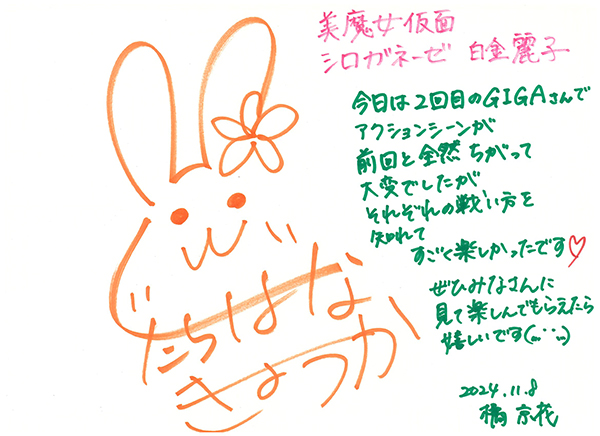 美魔女仮面
シロガネーゼ 白金麗子
今日は2回目のGIGAさんで
アクションシーンが
前回と全然ちがって
大変でしたが
それぞれの戦い方を
知れて
すごく楽しかったです♡
ぜひみなさんに
見て楽しんでもらえたら
嬉しいです(⑉¨⑉)
2024.11.8
橘 京花
たちばな
きょうか